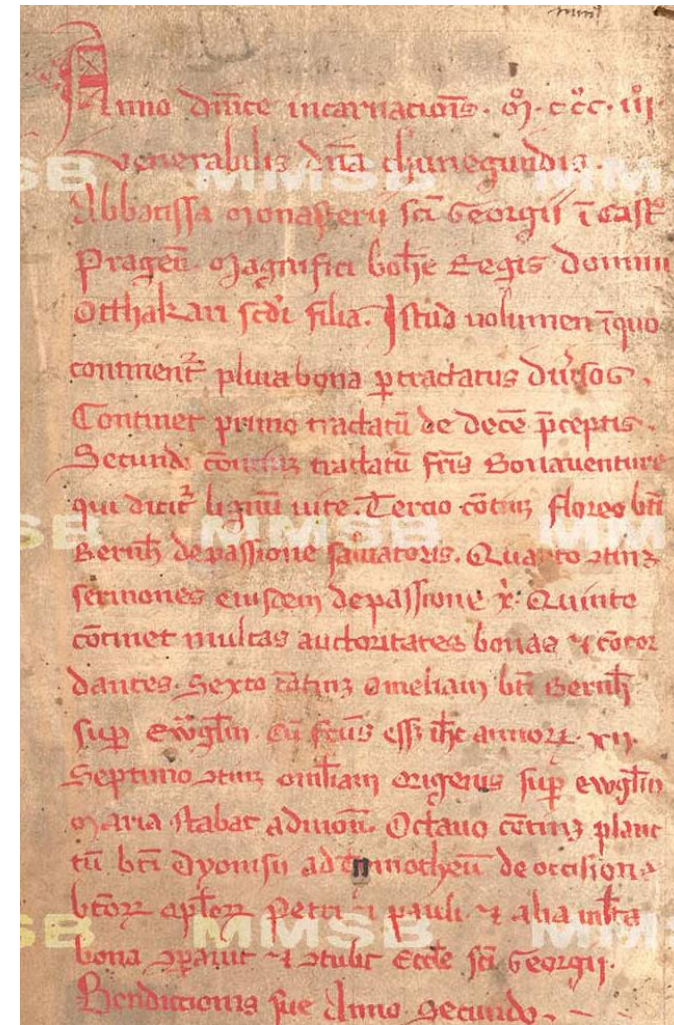 Anno dn̄ice incarnacionis. M. ccc. iii
Venerabilis dn̄a chunegundis.
Abbatissa Monasterii sc̄i Georgii ī castr̄
Pragen̄. Magnifici boh̄e Regis domini
Otthakari scd̄i filia. Istud uolumen ī quo
continent᷑ plura bona ꝑ tractatus diuͥsos.
Continet primo tractatū de decē p̄ceptis.
Secundo cōtinꝫ tractatū fr̄is Bonauenture
qui dicit᷑ lignū uite. Tercio cōtinꝫ flores bt̄i
Bernh̄ de passione saluatoris. Quarto ꝯtinꝫ
sermones eiusdem de passione x̄. Quinto
cōtinet multas auctoritates bonas ⁊ cōcor
dantes. Sexto cōtinꝫ omeliam bt̄i Bernh̄
suꝑ ewͣgl̄m. Cū fc̄us ess᷑ ih̄c annoꝝ. xii.
Septimo ꝯtinꝫ omīliam origenis suꝑ ewgl̄m
Maria stabat ad mon̄. Octauo cōtinꝫ planc
tū bt̄i Dyonisii ad timotheū de occisione
bt̄oꝝ apl̄oꝝ Petri ⁊ pauli. ⁊ alia ml̄ta
bona ꝯꝑauit ⁊ ꝯtulit Eccl̄e sc̄i Georgii.
Bendiccionis sue Anno Secundo.
MMSB
MMSB
MMSB